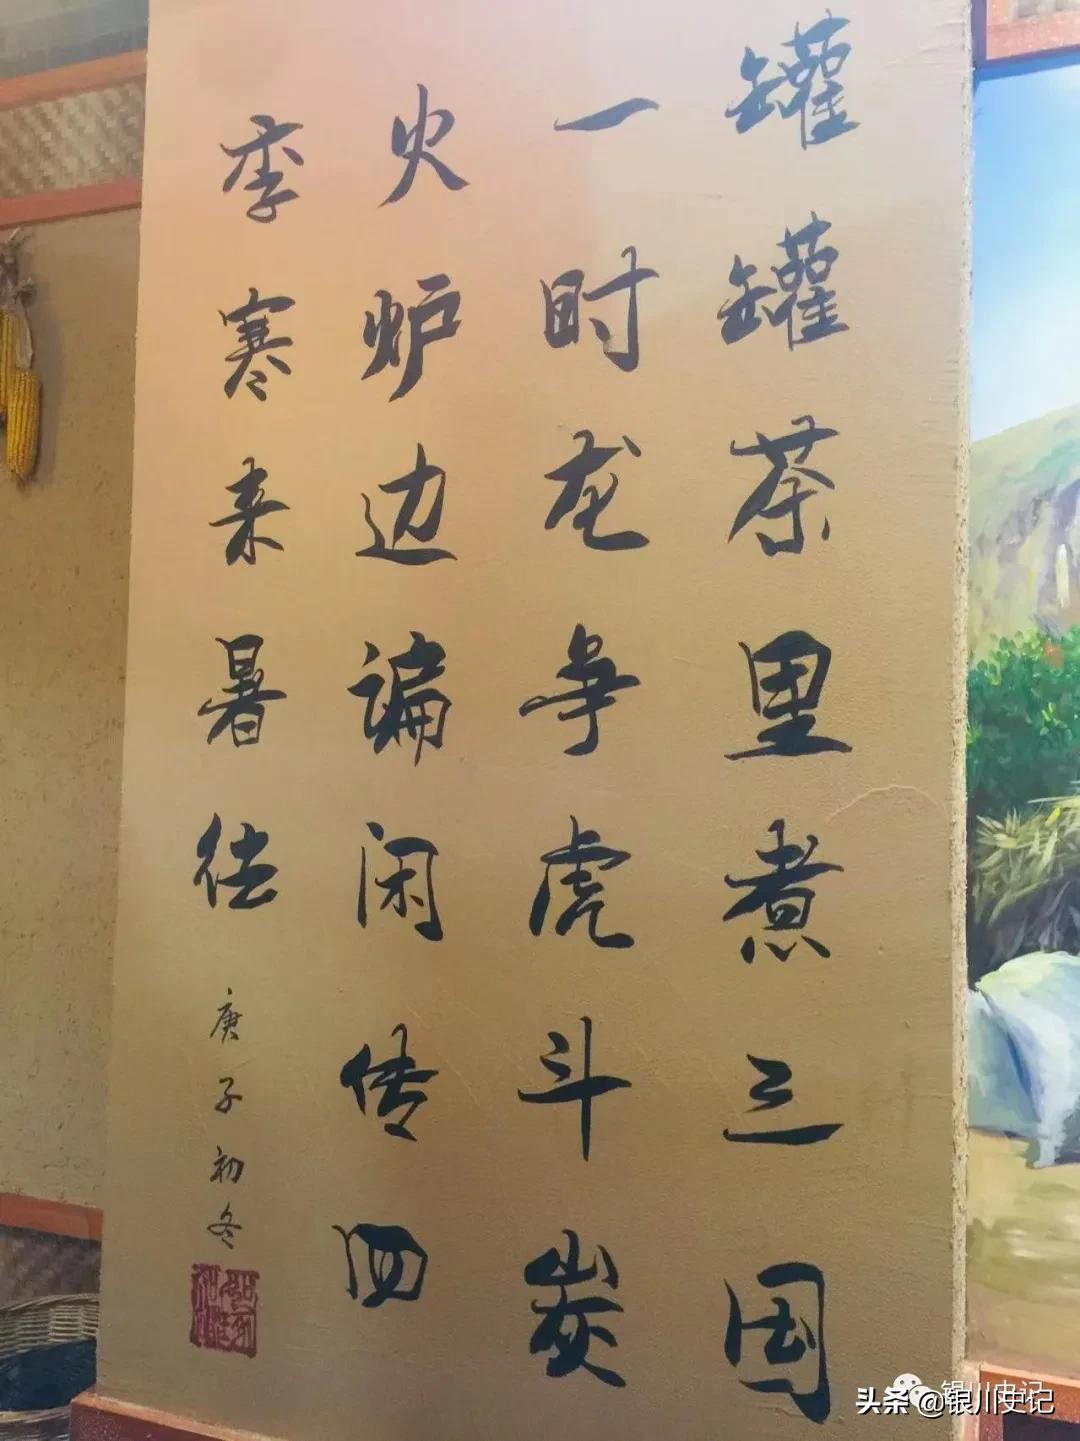 罐罐茶里煮三国
一时龙争虎斗炭
火炉边谝闲传四
季寒来暑往
庚子初冬
银川史记
头条 @银川史记